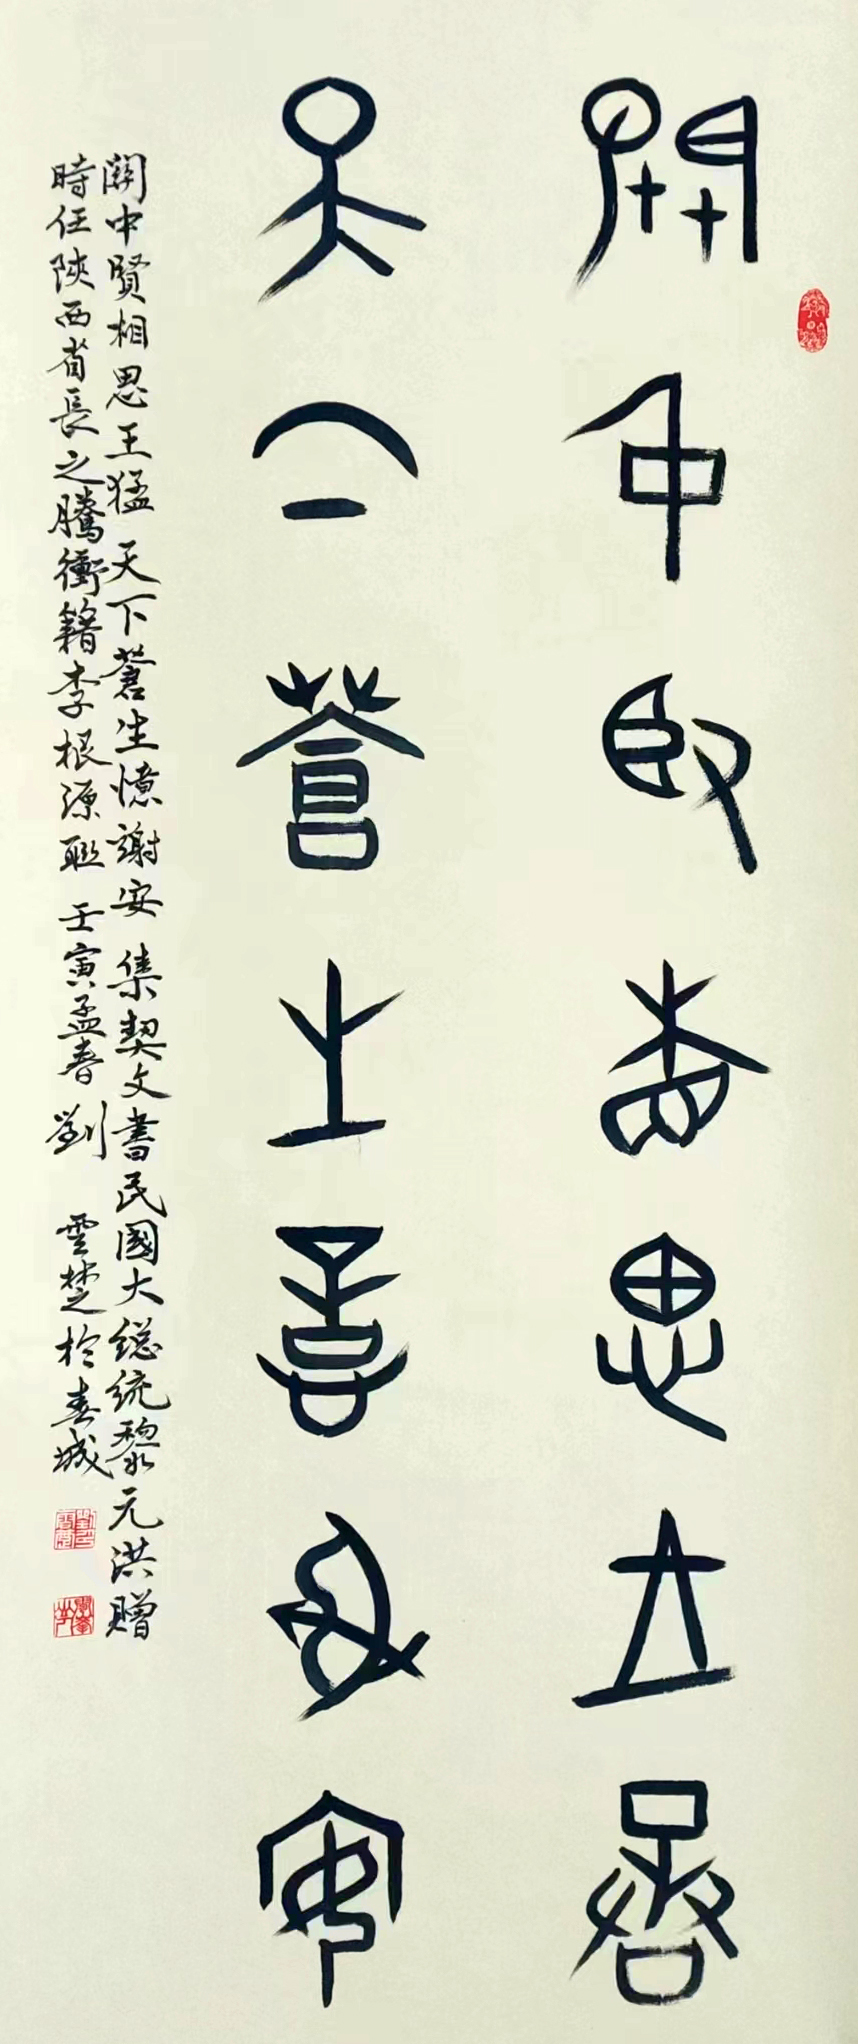 關中賢相思王猛
天下蒼生憶謝安
關中賢相思王猛 天下蒼生憶謝安 集契文書民國大總統黎元洪贈
時任陝西省長之騰衝籍李根源聯 壬寅孟春 劉雲楚於春城